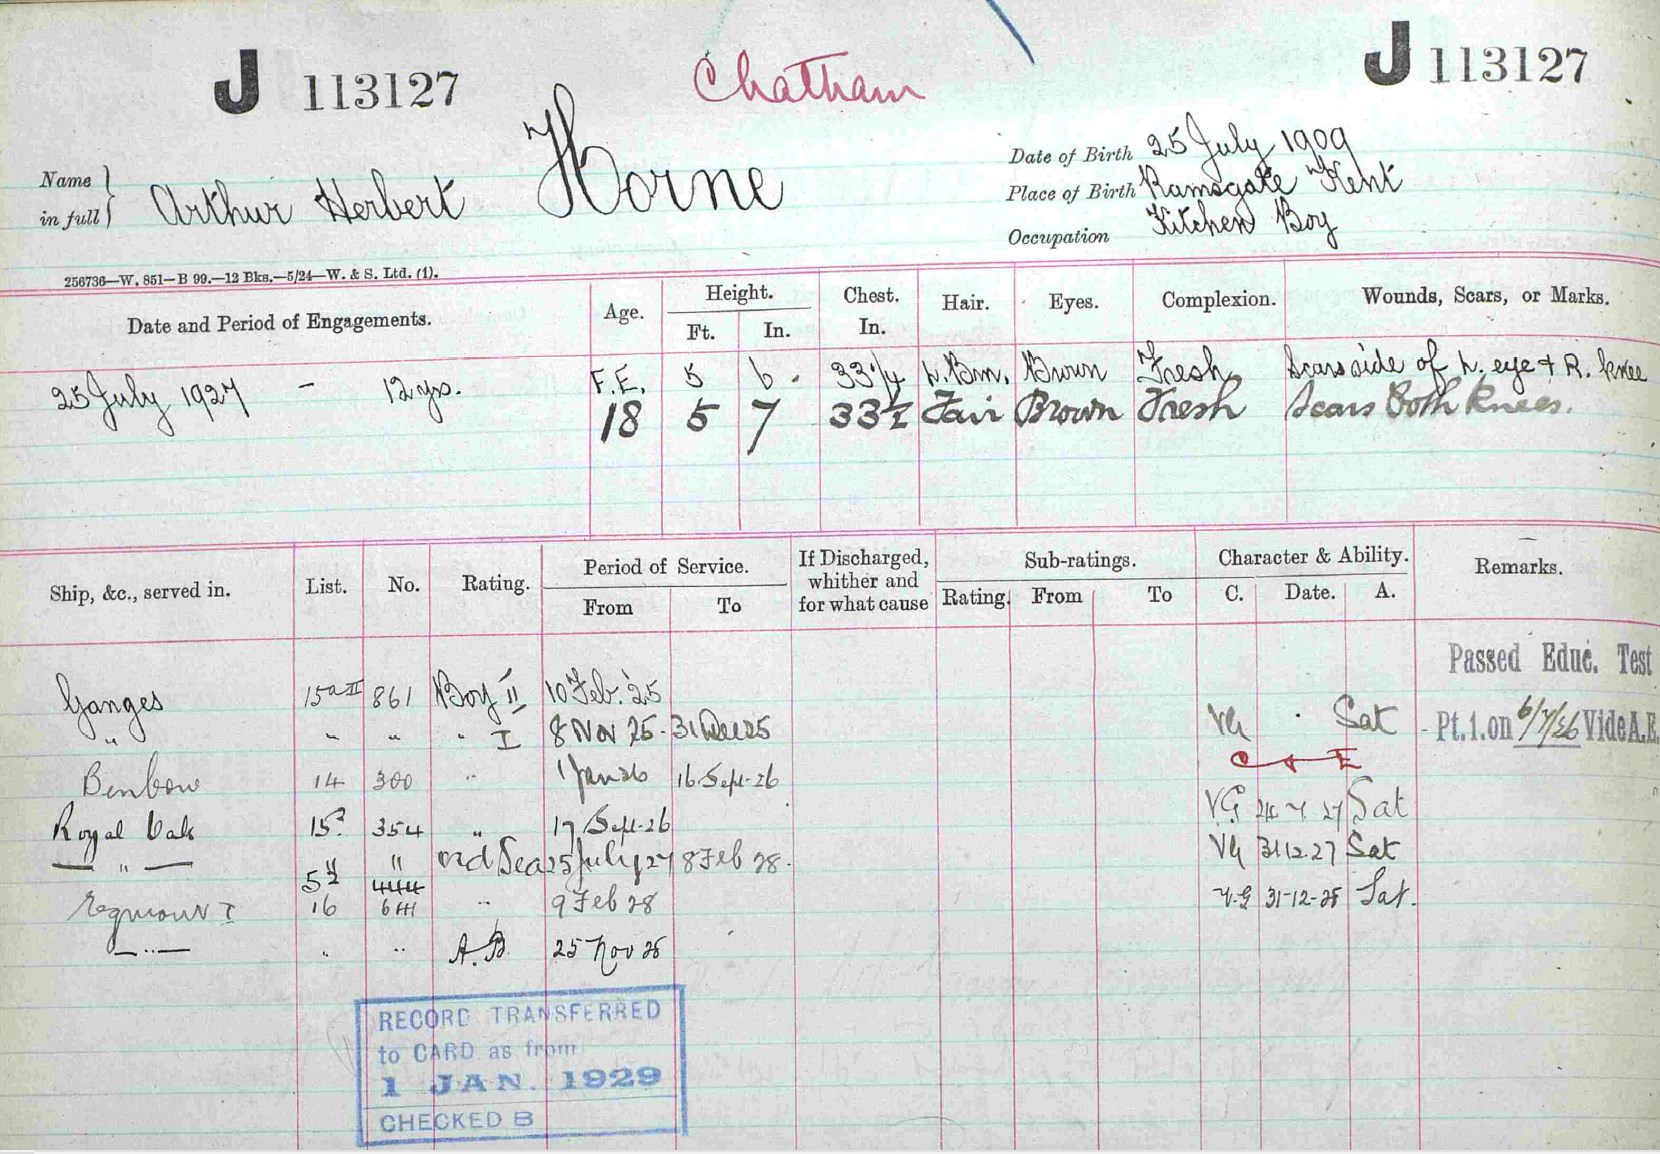 J 113127
Chatham
J 113127
Name in full } Arthur Herbert Horne
Date of Birth 25 July 1909
Place of Birth Ramsgate Kent
Occupation Kitchen Boy
256736—W. 851—B 99.—12 Bks.—5/24—W. & S. Ltd. (1).
Date and Period of Engagements. Age. Height. Ft. In. Chest. In. Hair. Eyes. Complexion. Wounds, Scars, or Marks.
25 July 1927 - 12 yrs. F.E. 5 6 . 33 1/4 L. Brn. Brown Fresh Scars side of L. eye + R. knee
18 5 7 33 1/2 Fair Brown Fresh Scars Both Knees.
Ship, &c., served in. List. No. Rating. Period of Service. From To If Discharged, whither and for what cause Sub-ratings. Rating. From To Character & Ability. C. Date. A. Remarks.
Passed Educ. Test
Ganges 15a II 861 Boy II 10 Feb. '25
" " " " I 8 Nov 25 - 31 Dec 25 VG . Sat Pt. 1. on 6/7/26 Vide A.E.
C + E
Benbow 14 300 " 1 Jan 26 16 Sept - 26
Royal Oak 15 354 " 17 Sept - 26 VG 24 7 27 Sat
— " — 5 " 444 Ord Sea 25 July 27 8 Feb 28. VG 31 12 27 Sat
Egmont I 16 " 9 Feb 28 V.G 31-12-28 Sat.
— " — " " A.B. 25 Nov 28
RECORD TRANSFERRED
to CARD as from
1 JAN. 1929
CHECKED B